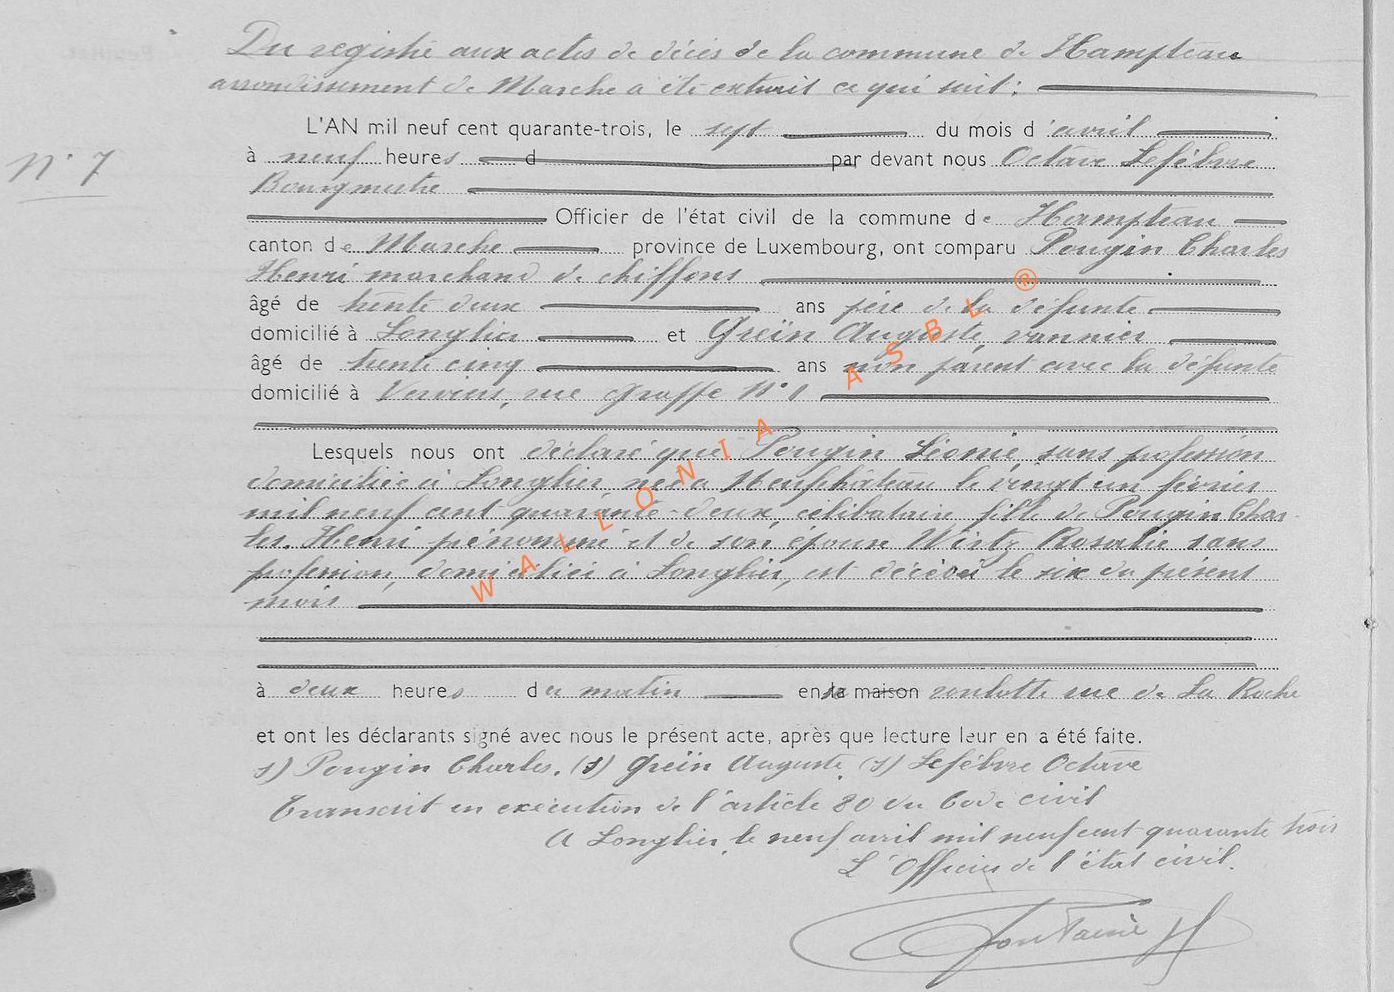 Du registre aux actes de décès de la commune de Hampteau
arrondissement de Marche a été extrait ce qui suit :
L'AN mil neuf cent quarante-trois, le sept du mois d'avril
N° 7
à neuf heures d par devant nous Octave Lefèbvre
Bourgmestre
Officier de l'état civil de la commune de Hampteau
canton de Marche province de Luxembourg, ont comparu Pougin Charles
Henri marchand de chiffons
âgé de trente deux ans père de la défunte
domicilié à Longlier et Greïn Auguste, vannier
âgé de trente cinq ans non parent avec la défunte
domicilié à Verviers, rue Graffe N° 1
Lesquels nous ont déclaré que Pougin Léonie, sans profession
domiciliée à Longlier, née à Neufchâteau le vingt un février
mil neuf cent quarante-deux, célibataire, fille de Pougin Char-
les. Henri prénommé et de son épouse Wirtz Rosalie sans
profession, domiciliée à Longlier, est décédée le six du présent
mois
à deux heures du matin en sa maison roulotte rue de La Roche
et ont les déclarants signé avec nous le présent acte, après que lecture leur en a été faite.
s) Pougin Charles. (s) Greïn Auguste (s) Lefèbvre Octave
Transcrit en exécution de l'article 80 du Code civil
A Longlier, le neuf avril mil neuf cent quarante trois
L'Officier de l'état civil.
Fontaine H
WALLONIA ASBL ®